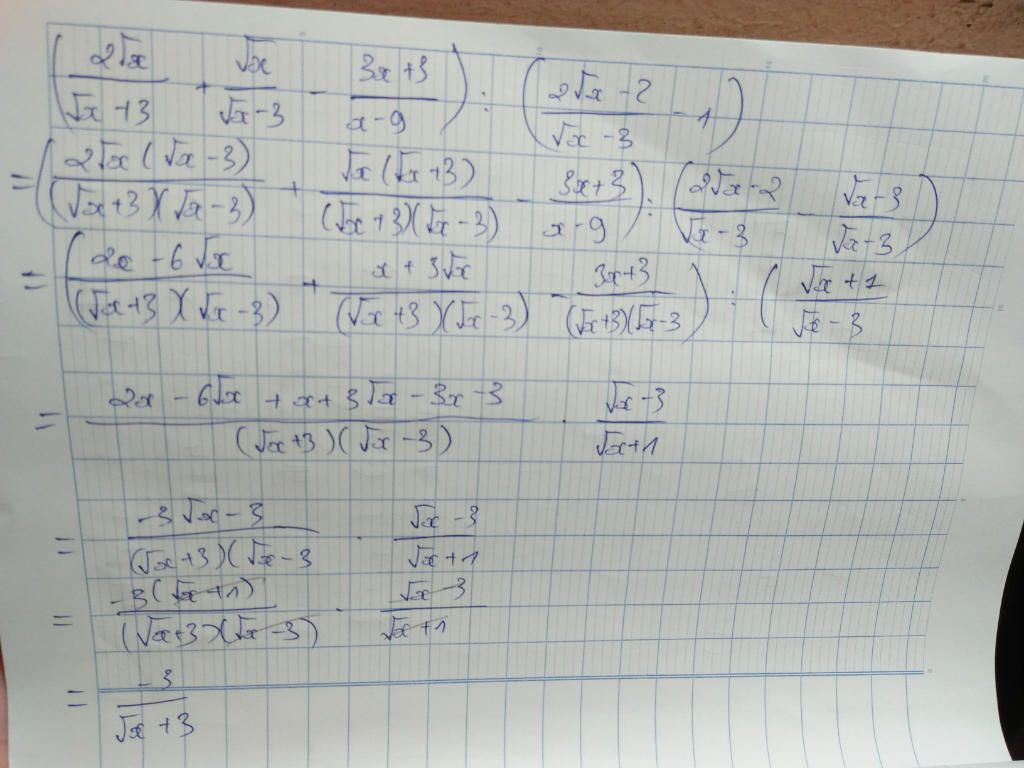 (2√x/(√x+3) + √x/(√x-3) - (3x+3)/(x-9)) : ((2√x-2)/(√x-3) - 1)
= (2√x(√x-3)/((√x+3)(√x-3)) + √x(√x+3)/((√x+3)(√x-3)) - (3x+3)/(x-9)) : ((2√x-2)/(√x-3) - (√x-3)/(√x-3))
= ((2x-6√x)/((√x+3)(√x-3)) + (x+3√x)/((√x+3)(√x-3)) - (3x+3)/((√x+3)(√x-3)) : ((√x+1)/(√x-3)
= (2x-6√x+x+3√x-3x-3)/((√x+3)(√x-3)) . (√x-3)/(√x+1)
= (-3√x-3)/((√x+3)(√x-3) . (√x-3)/(√x+1)
= -3(√x+1)/((√x+3)(√x-3)) . (√x-3)/(√x+1)
= -3/(√x+3)